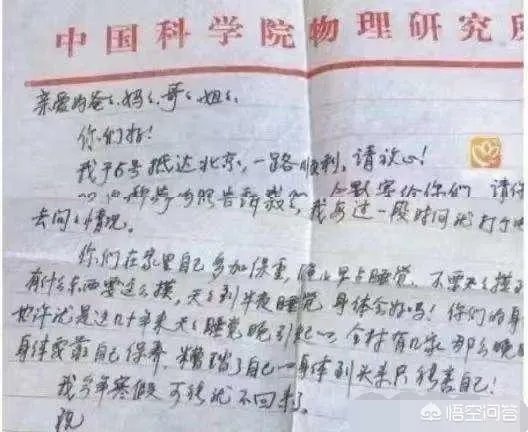 中国科学院物理研究所
亲爱的爸々、妈々、哥々、姐々：
你们好！
我于6号抵达北京，一路顺利，请放心！
告诉我 给你们 请你
去问々情况。 我每过一段时间 打个电
你们在家里自己多加保重，晚上早点睡觉，不要天々摸
有什么东西要这么摸，天々到半夜睡觉 身体会好吗！你们的身
也许就是这几十年来天々睡觉晚引起 全村有几家 那么晚
身体要靠自己保养，糟踏了自己 身体到头来只能害自己！
我今年寒假可能就不回来了。
祝
悟空问答